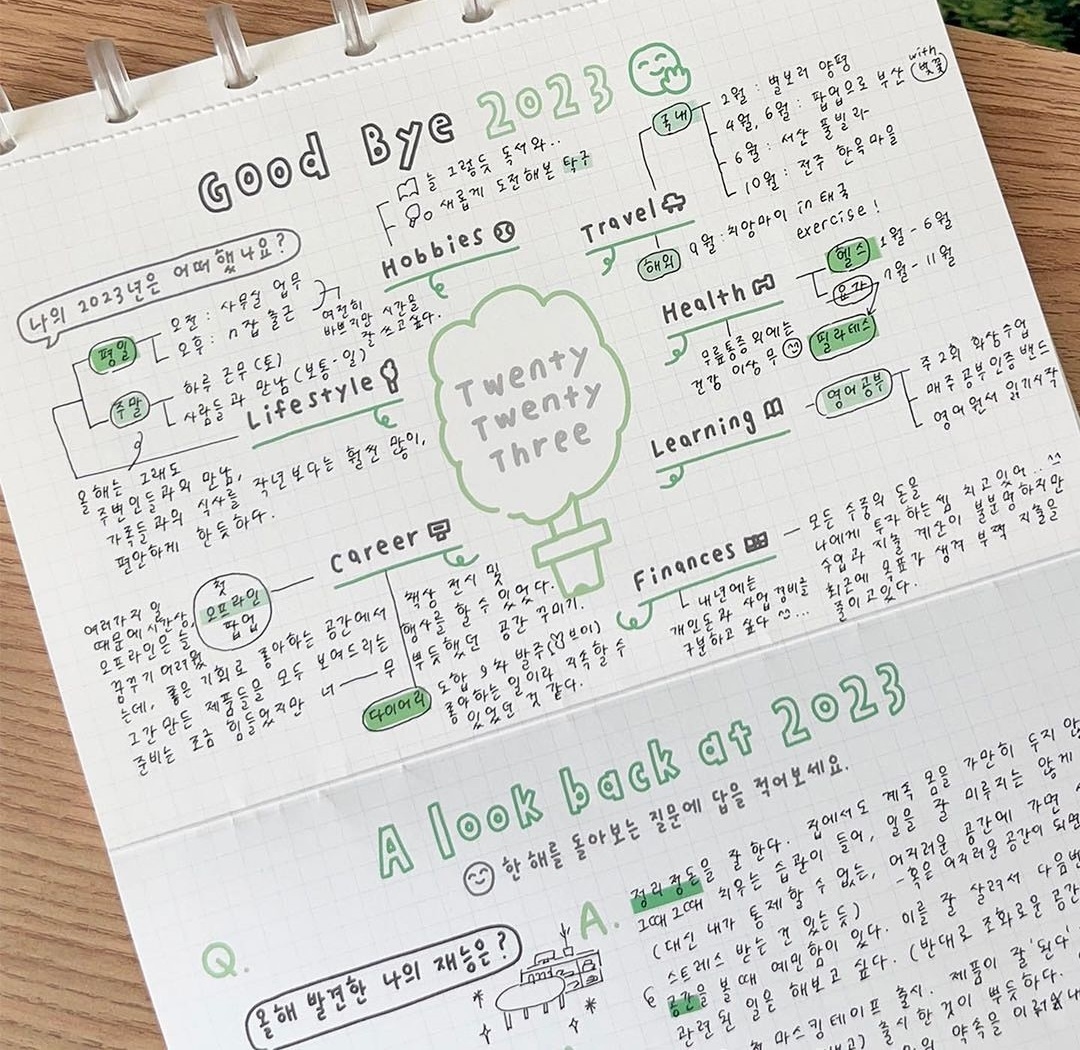 Good Bye 2023
늘 그렇듯 독서와..
새롭게 도전해본 탁구
Hobbies
국내
2월 : 별보러 양평
4월, 6월 : 팝업으로 부산 with 벚꽃
6월 : 서산 풀빌라
10월 : 전주 한옥마을
Travel
해외
9월 : 치앙마이 in 태국
나의 2023년은 어떠했나요?
평일
오전 : 사무실 업무
오후 : n잡 출근
여전히
바쁘지만 시간을
잘 쓰고싶다.
주말
하루 근무 (토)
사람들과 만남 (보통-일)
Lifestyle
올해는 그래도
주변인들과의 만남,
가족들과의 식사를 작년보다는 훨씬 많이,
편안하게 한듯하다.
Twenty
Twenty
Three
exercise!
Health
헬스
1월 - 6월
요가
7월 - 11월
필라테스
무릎통증 외에는
건강 이상 무
Learning
영어공부
주 2회 화상수업
매주 공부인증 밴드
영어원서 읽기시작
Career
첫
오프라인
팝업
여러가지 일
때문에 시간상,
오프라인은 늘
꿈꾸기 어려웠
는데, 좋은 기회로 좋아하는 공간에서
그간 만든 제품들을 모두 보여드리는
준비는 조금 힘들었지만 너 무
책상 전시 및
행사를 할 수 있었다.
뿌듯했던 공간 꾸미기.
다이어리
도합 9차 발주
좋아하는 일이라 지속할 수
있었던 것 같다.
Finances
모든 수중의 돈을
나에게 투자 하는셈 치고 있어..^^
수입과 지출 계산이 불분명하지만
최근에 목표가 생겨 부쩍 지출을
줄이고있다.
내년에는
개인돈과 사업경비를
구분하고 싶다 ^^...
A look back at 2023
한 해를 돌아보는 질문에 답을 적어보세요.
Q.
올해 발견한 나의 재능은?
A.
정리정돈을 잘 한다. 집에서도 계속 몸을 가만히 두지 않
그때그때 치우는 습관이 들어, 일을 잘 미루지는 않게
(대신 내가 통제할 수 없는, 어지러운 공간에 가면
스트레스 받는 건 있는듯) -혹은 어지러운 공간이 되면
공간을 볼 때 예민함이 있다. 이를 잘 살려서 다음번
관련된 일을 해보고 싶다. (반대로 조화로운 공간
첫 마스킹테이프 출시. 제품이 잘 '된다'
출시한 것이 뿌듯하다.
약속을